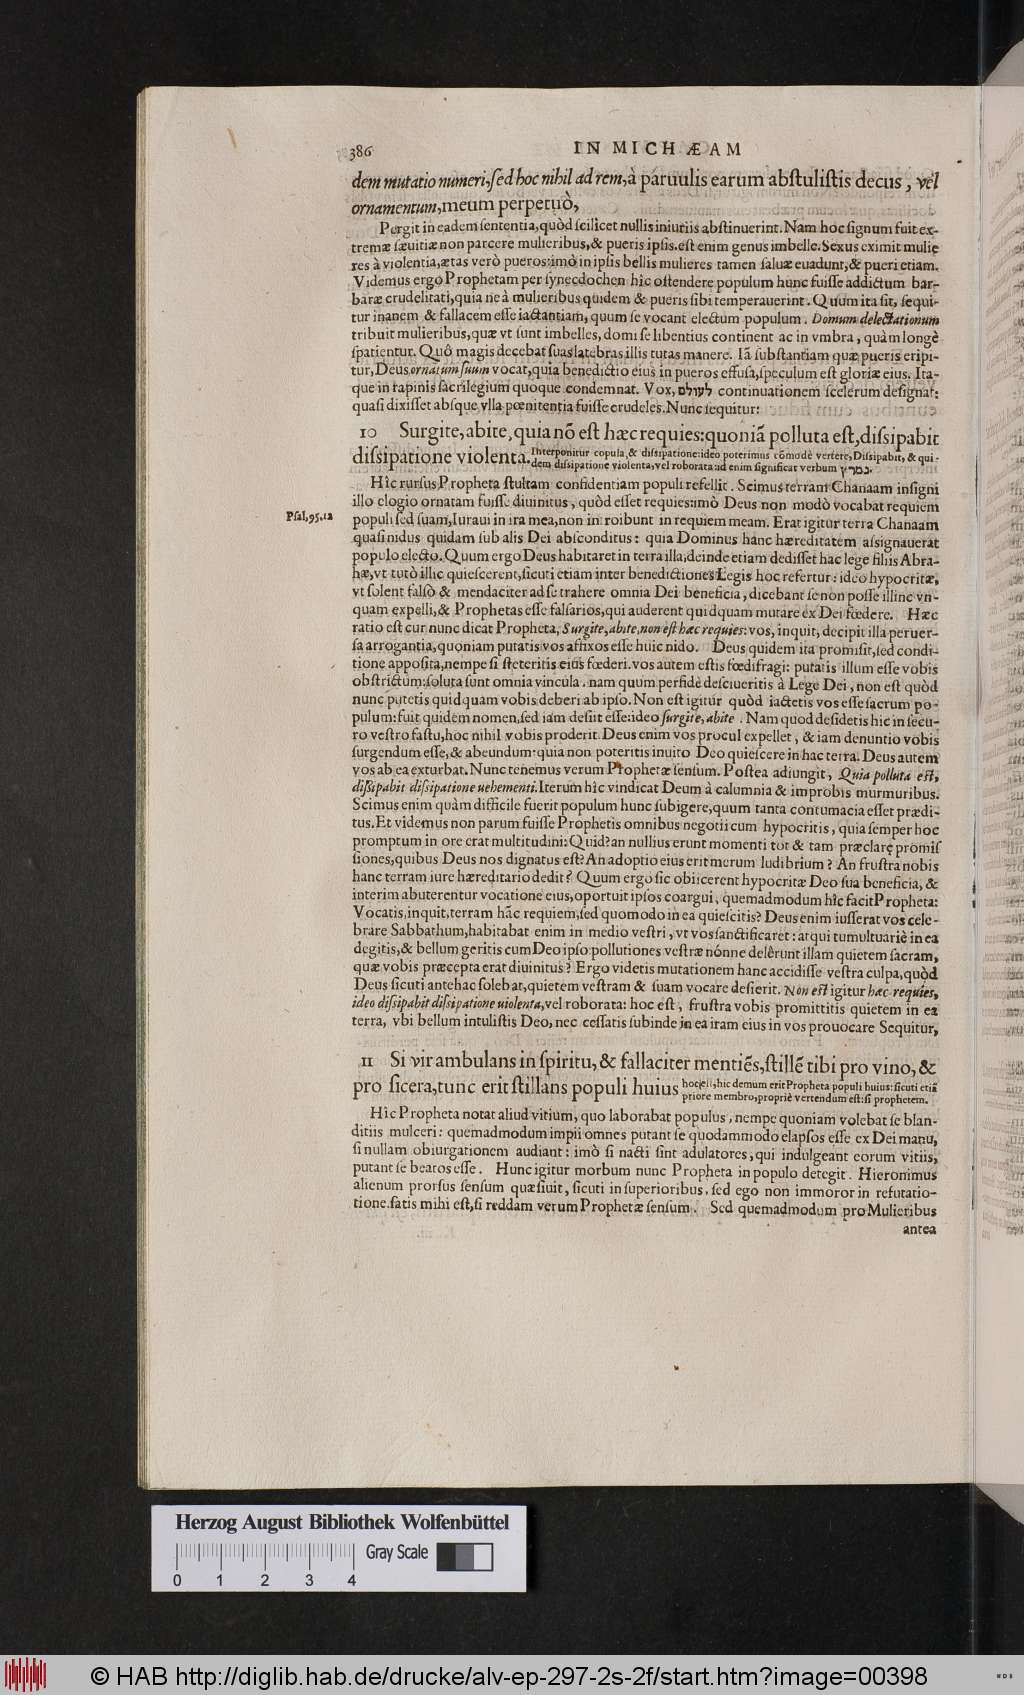 386 IN MICHÆAM
dem mutatio numeri, sed hoc nihil ad rem, à paruulis earum abstulistis decus, vel
ornamentum, meum perpetuò,
Pergit in eadem sententia, quòd scilicet nullis iniuriis abstinuerint. Nam hoc signum fuit ex-
tremæ sæuitiæ non parcere mulieribus, & pueris ipsis. est enim genus imbelle. Sexus eximit mulie
res à violentia, ætas verò pueros: imò in ipsis bellis mulieres tamen saluæ euadunt, & pueri etiam.
Videmus ergo Prophetam per synecdochen hîc ostendere populum hunc fuisse addictum bar-
baræ crudelitati, quia ne à mulieribus quidem & pueris sibi temperauerint. Quum ita sit, sequi-
tur inanem & fallacem esse iactantiam, quum se vocant electum populum. Domum delectationum
tribuit mulieribus, quæ vt sunt imbelles, domi se libentius continent ac in vmbra, quàm longè
spatientur. Quô magis decebat suas latebras illis tutas manere. Iã substantiam quæ pueris eripi-
tur, Deus ornatum suum vocat, quia benedictio eius in pueros effusa, speculum est gloriæ eius. Ita-
que in rapinis sacrilegium quoque condemnat. Vox, לעולם continuationem scelerum designat:
quasi dixisset absque vlla pœnitentia fuisse crudeles. Nunc sequitur:
10 Surgite, abite, quia nõ est hæc requies: quoniã polluta est, dissipabit
dissipatione violenta. Interponitur copula, & dissipatione: ideo poterimus cõmodè vertere, Dissipabit, & qui-
dem dissipatione violenta, vel roborata ad enim significat verbum נמרץ.
Hîc rursus Propheta stultam confidentiam populi refellit. Scimus terram Chanaam insigni
illo elogio ornatam fuisse diuinitus, quòd esset requies: imò Deus non modò vocabat requiem
Psal. 95, 12
populi sed suam, Iuraui in ira mea, non introibunt in requiem meam. Erat igitur terra Chanaam
quasi nidus quidam sub alis Dei absconditus: quia Dominus hanc hæreditatem assignauerat
populo electo. Quum ergo Deus habitaret in terra illa, deinde etiam dedisset hac lege filiis Abra-
hæ, vt tutò illic quiescerent, sicuti etiam inter benedictiones Legis hoc refertur: ideo hypocritæ,
vt solent falsò & mendaciter ad se trahere omnia Dei beneficia, dicebant se non posse illinc vn-
quam expelli, & Prophetas esse falsarios, qui auderent quidquam mutare ex Dei fœdere. Hæc
ratio est cur nunc dicat Propheta, Surgite, abite, non est hæc requies: vos, inquit, decipit illa peruer-
sa arrogantia, quoniam putatis vos affixos esse huic nido. Deus quidem ita promisit, sed condi-
tione apposita, nempe si steteritis eius fœderi. vos autem estis fœdifragi: putatis illum esse vobis
obstrictum: soluta sunt omnia vincula. nam quum perfidè desciueritis à Lege Dei, non est quòd
nunc putetis quidquam vobis deberi ab ipso. Non est igitur quòd iactetis vos esse sacrum po-
pulum: fuit quidem nomen, sed iam desiit esse: ideo surgite, abite. Nam quod desidetis hic in secu-
ro vestro fastu, hoc nihil vobis proderit. Deus enim vos procul expellet, & iam denuntio vobis
surgendum esse, & abeundum: quia non poteritis inuito Deo quiescere in hac terra. Deus autem
vos ab ea exturbat. Nunc tenemus verum Prophetæ sensum. Postea adiungit, Quia polluta est,
dissipabit dissipatione uehementi. Iterum hîc vindicat Deum à calumnia & improbis murmuribus.
Scimus enim quàm difficile fuerit populum hunc subigere, quum tanta contumacia esset prædi-
tus. Et videmus non parum fuisse Prophetis omnibus negotii cum hypocritis, quia semper hoc
promptum in ore erat multitudini: Quid? an nullius erunt momenti tot & tam præclaræ promis
siones, quibus Deus nos dignatus est? An adoptio eius erit merum ludibrium? An frustra nobis
hanc terram iure hæreditario dedit? Quum ergo sic obiicerent hypocritæ Deo sua beneficia, &
interim abuterentur vocatione eius, oportuit ipsos coargui, quemadmodum hîc facit Propheta:
Vocatis, inquit, terram hãc requiem, sed quomodo in ea quiescitis? Deus enim iusserat vos cele-
brare Sabbathum, habitabat enim in medio vestri, vt vos sanctificaret: atqui tumultuariè in ea
degitis, & bellum geritis cum Deo ipso: pollutiones vestræ nónne delêrunt illam quietem sacram,
quæ vobis præcepta erat diuinitus? Ergo videtis mutationem hanc accidisse vestra culpa, quòd
Deus sicuti antehac solebat, quietem vestram & suam vocare desierit. Non est igitur hæc requies,
ideo dissipabit dissipatione uiolenta, vel roborata: hoc est, frustra vobis promittitis quietem in ea
terra, vbi bellum intulistis Deo, nec cessatis subinde in ea iram eius in vos prouocare Sequitur,
11 Si vir ambulans in spiritu, & fallaciter mentiẽs, stillẽ tibi pro vino, &
pro sicera, tunc erit stillans populi huius hoc est, hic demum erit Propheta populi huius: sicuti etiã
priore membro, propriè vertendum est: si prophetem.
Hîc Propheta notat aliud vitium, quo laborabat populus, nempe quoniam volebat se blan-
ditiis mulceri: quemadmodum impii omnes putant se quodammodo elapsos esse ex Dei manu,
si nullam obiurgationem audiant: imò si nacti sint adulatores, qui indulgeant eorum vitiis,
putant se beatos esse. Hunc igitur morbum nunc Propheta in populo detegit. Hieronimus
alienum prorsus sensum quæsiuit, sicuti in superioribus. sed ego non immoror in refutatio-
tione. satis mihi est, si reddam verum Prophetæ sensum. Sed quemadmodum pro Mulieribus
antea
Herzog August Bibliothek Wolfenbüttel
Gray Scale
0 1 2 3 4
© HAB http://diglib.hab.de/drucke/alv-ep-297-2s-2f/start.htm?image=00398